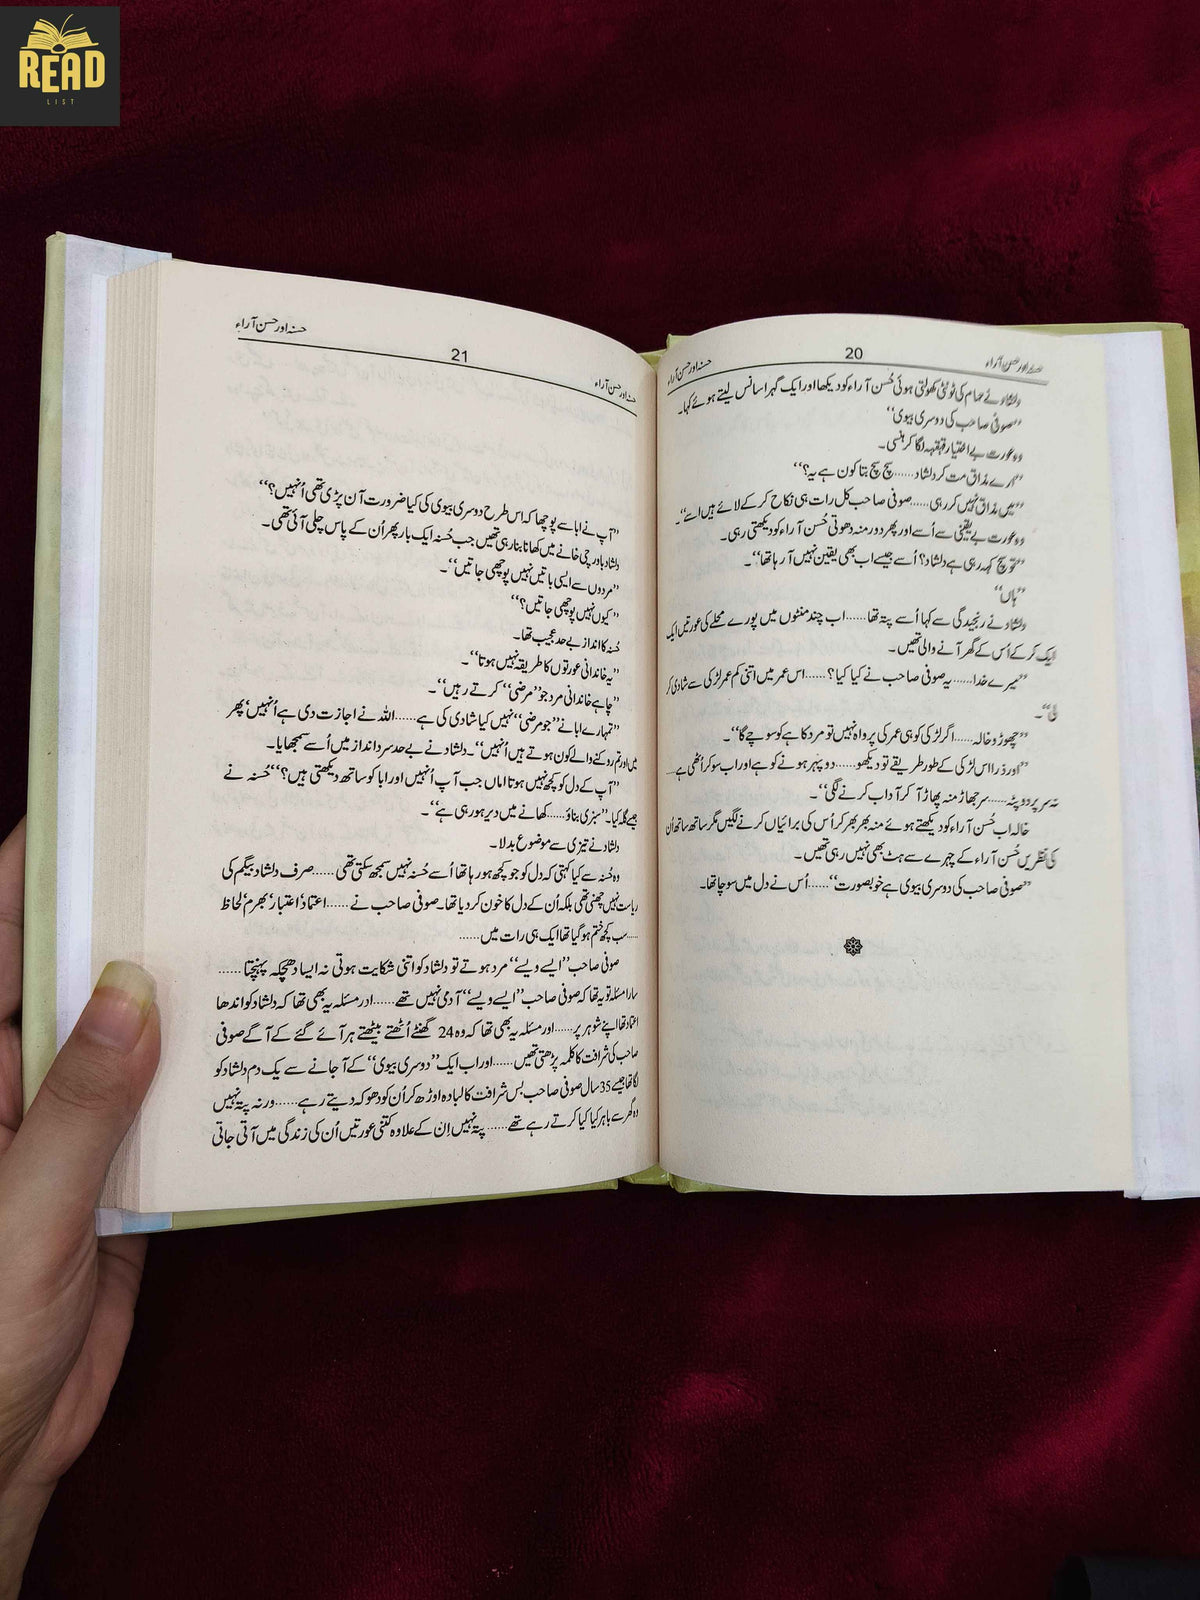 READ
LIST
حسنہ اور حسن آراء
20
حسنہ اور حسن آراء
دلشاد نے حمام کی ٹونٹی کھولتی ہوئی حُسن آراء کو دیکھا اور ایک گہرا سانس لیتے ہوئے کہا۔
”صوفی صاحب کی دوسری بیوی“
وہ عورت بے اختیار قہقہہ لگا کر ہنسی۔
”ارے مذاق مت کر دلشاد......سچ سچ بتا کون ہے یہ؟“
”میں مذاق نہیں کر رہی......صوفی صاحب کل رات ہی نکاح کر کے لائے ہیں اسے“۔
وہ عورت بے یقینی سے اُسے اور پھر دور منہ دھوتی حُسن آراء کو دیکھتی رہی۔
”تُو سچ کہہ رہی ہے دلشاد؟ اُسے جیسے اب بھی یقین نہیں آ رہا تھا“۔
”ہاں“
دلشاد نے رنجیدگی سے کہا اُسے پتہ تھا......اب چند منٹوں میں پورے محلے کی عورتیں ایک
ایک کر کے اُس کے گھر آنے والی تھیں۔
”میرے خدا......یہ صوفی صاحب نے کیا کیا؟......اس عمر میں اتنی کم عمر لڑکی سے شادی کر
لی“۔
”چھوڑو خالہ......اگر لڑکی کو ہی عمر کی پرواہ نہیں تو مرد کاہے کو سوچے گا“۔
”اور ذرا اس لڑکی کے طور طریقے تو دیکھو......دوپہر ہونے کو ہے اور اب سو کر اُٹھی ہے......
نہ سر پر دوپٹہ......سر جھاڑ منہ پھاڑ آ کر آداب کرنے لگی“۔
خالہ اب حُسن آراء کو دیکھتے ہوئے منہ بھر بھر کر اُس کی برائیاں کرنے لگیں مگر ساتھ ساتھ اُن
کی نظریں حُسن آراء کے چہرے سے ہٹ بھی نہیں رہی تھیں۔
”صوفی صاحب کی دوسری بیوی ہے خوبصورت“......اُس نے دل میں سوچا تھا۔
حسنہ اور حسن آراء
21
حسنہ اور حسن آراء
”آپ نے ابا سے پوچھا کہ اس طرح دوسری بیوی کی کیا ضرورت آن پڑی تھی اُنہیں؟“
دلشاد باورچی خانے میں کھانا بنا رہی تھیں جب حُسنہ ایک بار پھر اُن کے پاس چلی آئی تھی۔
”مردوں سے ایسی باتیں نہیں پوچھی جاتیں“۔
”کیوں نہیں پوچھی جاتیں؟“
حُسنہ کا انداز بے حد عجیب تھا۔
”یہ خاندانی عورتوں کا طریقہ نہیں ہوتا“۔
”چاہے خاندانی مرد جو ”مرضی“ کرتے رہیں“۔
”تمہارے ابا نے ”جو مرضی“ نہیں کیا شادی کی ہے......اللہ نے اجازت دی ہے اُنہیں‘ پھر
میں اور تم روکنے والے کون ہوتے ہیں اُنہیں“۔ دلشاد نے بے حد سرد انداز میں اُسے سمجھایا۔
”آپ کے دل کو کچھ نہیں ہوتا اماں جب آپ اُنہیں اور ابا کو ساتھ دیکھتی ہیں؟“ حُسنہ نے
جیسے گلہ کیا۔ ”سبزی بناؤ......کھانے میں دیر ہو رہی ہے“۔
دلشاد نے تیزی سے موضوع بدلا۔
وہ حُسنہ سے کیا کہتی کہ دل کو جو کچھ ہو رہا تھا اُسے حُسنہ نہیں سمجھ سکتی تھی......صرف دلشاد بیگم کی
رات نہیں چھنی تھی بلکہ اُن کے دل کا خون کر دیا تھا۔ صوفی صاحب نے......اعتماد‘ اعتبار‘ بھرم‘ لحاظ
......سب کچھ ختم ہو گیا تھا ایک ہی رات میں......
صوفی صاحب ”ایسے ویسے“ مرد ہوتے تو دلشاد کو اتنی شکایت ہوتی نہ ایسا دھچکہ پہنچتا......
سارا مسئلہ تو یہ تھا کہ صوفی صاحب ”ایسے ویسے“ آدمی نہیں تھے......اور مسئلہ یہ بھی تھا کہ دلشاد کو اندھا
اعتماد تھا اپنے شوہر پر......اور مسئلہ یہ بھی تھا کہ وہ 24 گھنٹے اُٹھتے بیٹھتے ہر آئے گئے کے آگے صوفی
صاحب کی شرافت کا کلمہ پڑھتی تھیں......اور اب ایک ”دوسری بیوی“ کے آ جانے سے یک دم دلشاد کو
لگا تھا جیسے 35 سال صوفی صاحب بس شرافت کا لبادہ اوڑھ کر اُن کو دھوکہ دیتے رہے......ورنہ پتہ نہیں
وہ گھر سے باہر کیا کیا کرتے رہے تھے......پتہ نہیں اِن کے علاوہ کتنی عورتیں اُن کی زندگی میں آتی جاتی